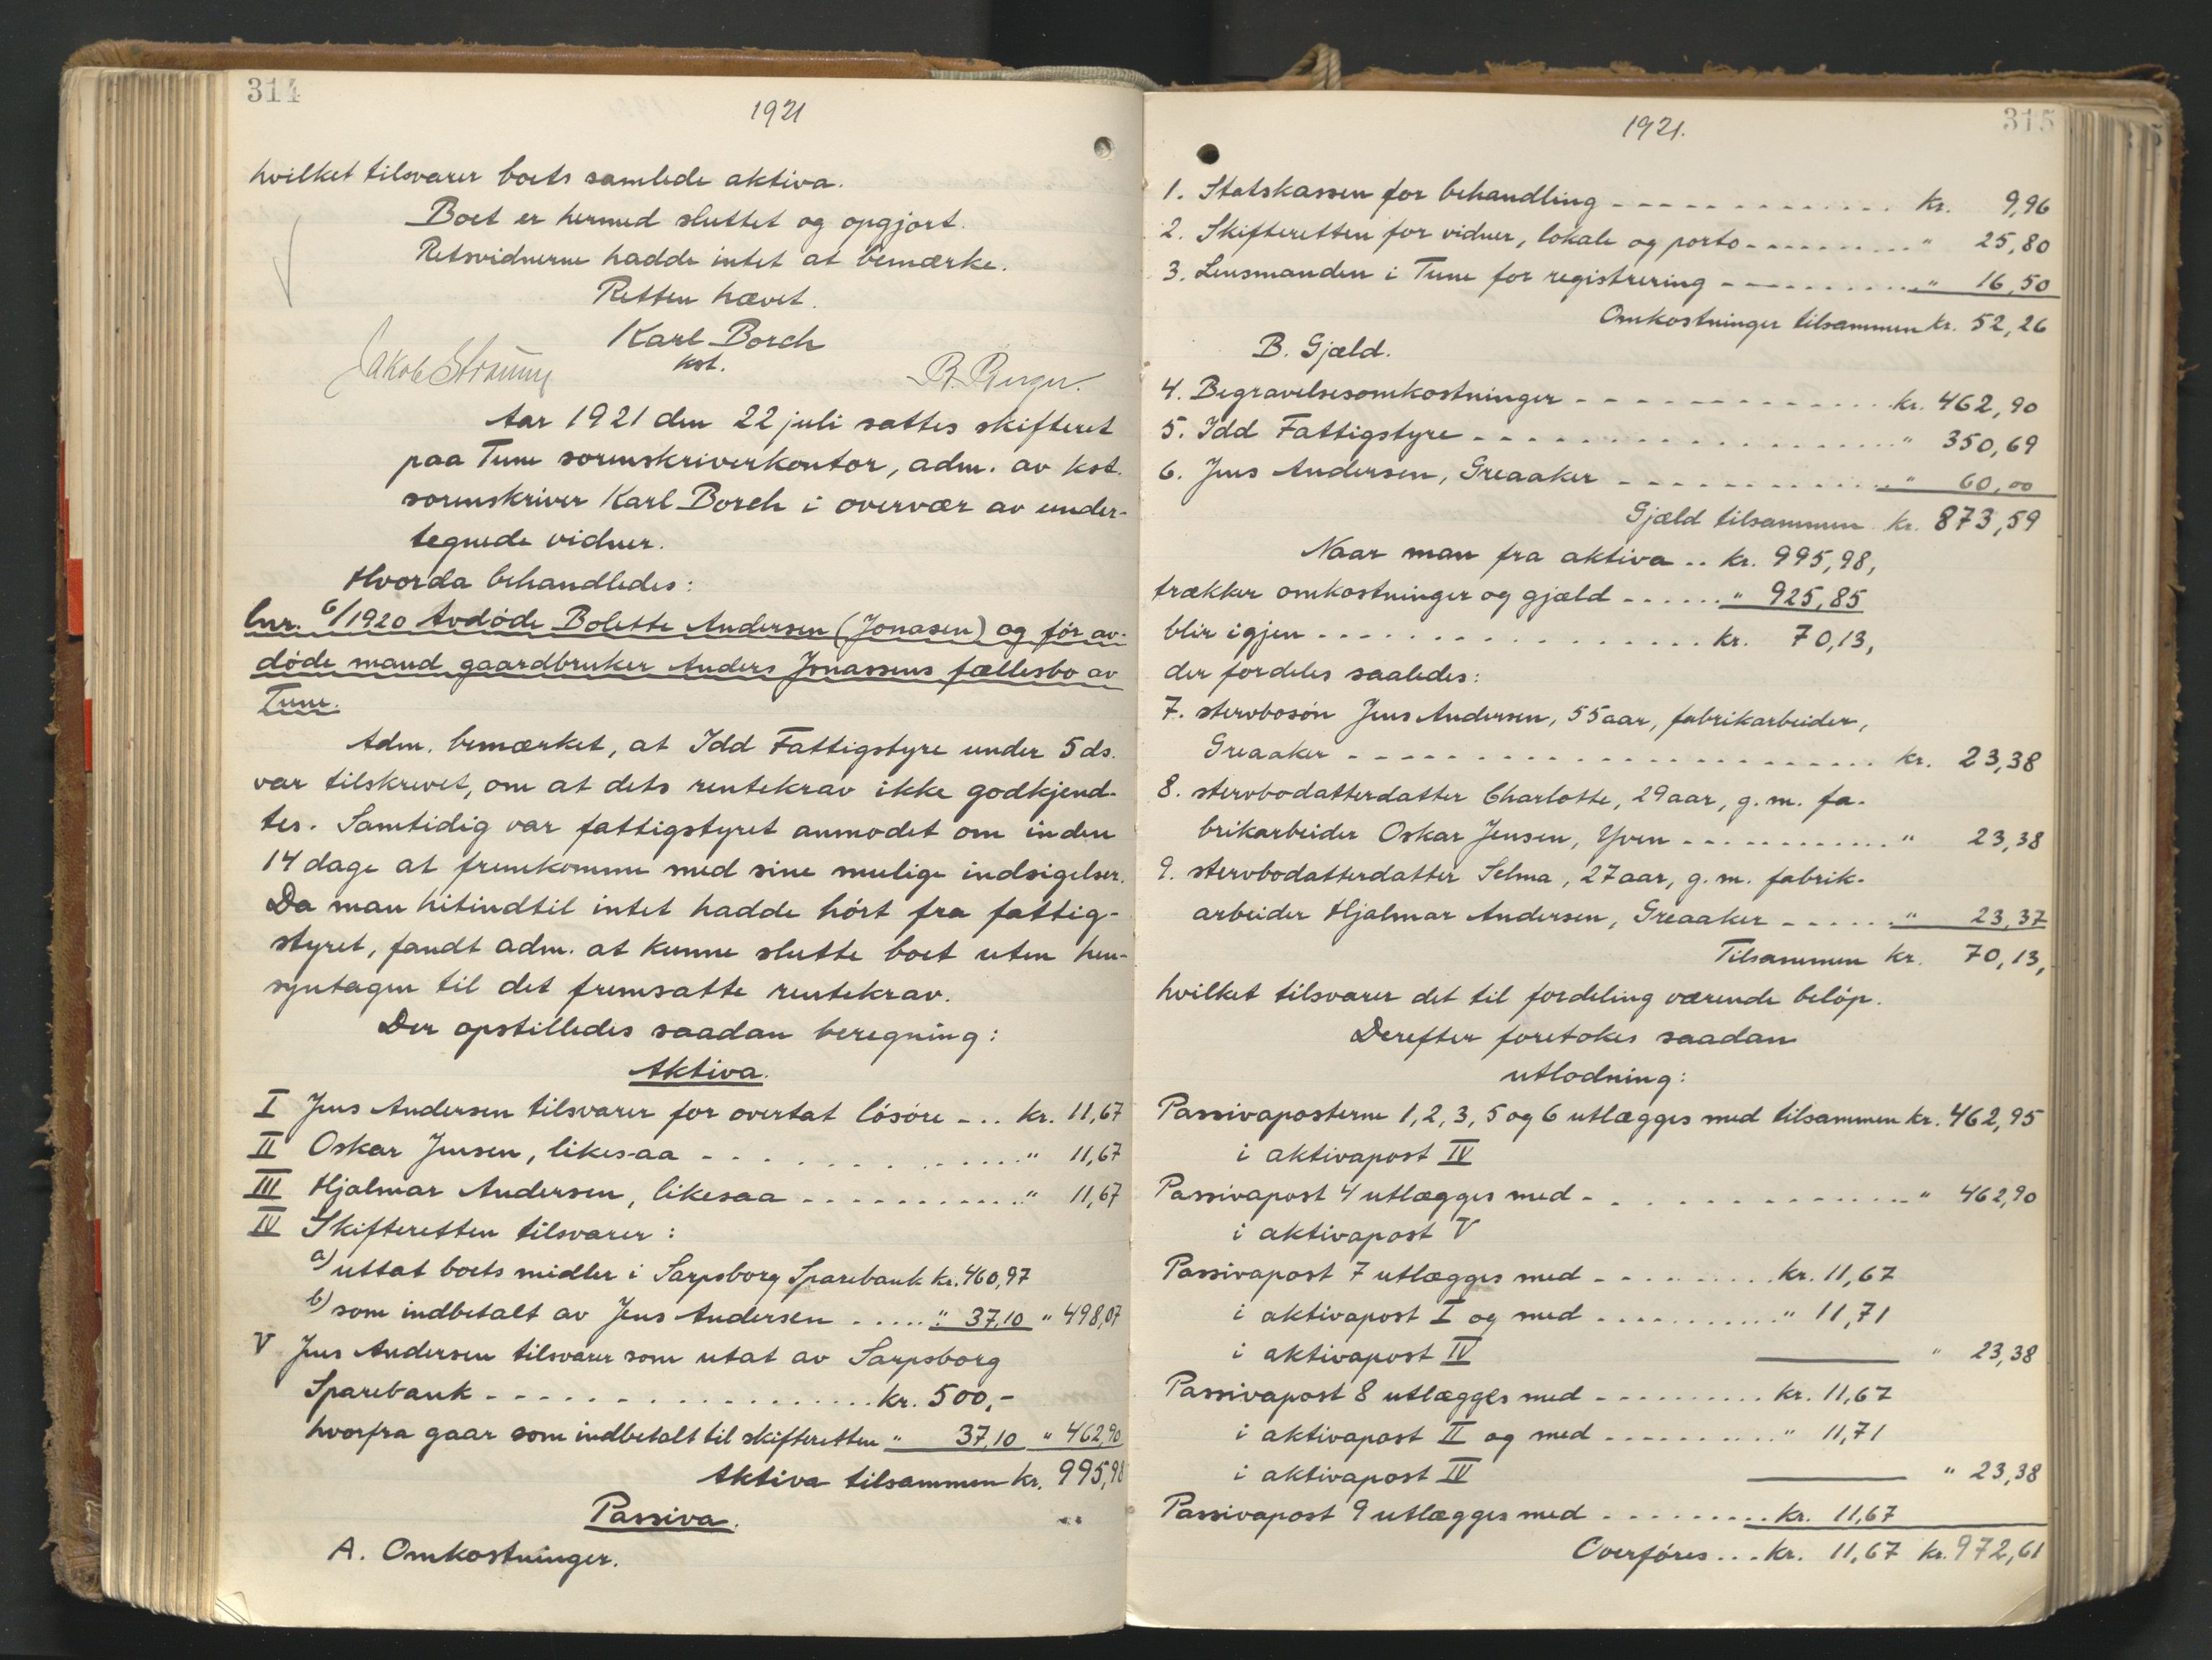 314
1921
hvilket tilsvarer boets samlede aktiva.
Boet er hermed sluttet og opgjort.
Retsvidnerne hadde intet at bemærke.
Retten hævet.
Karl Borch
kst.
Jakob Strømme
R. Berger.
Aar 1921 den 22 juli sattes skifteret
paa Tune sorenskriverkontor, adm. av kst.
sorenskriver Karl Borch i overvær av under-
tegnede vidner.
Hvorda behandledes:
Lnr. 6/1920 Avdøde Bolette Andersen (Jonasen) og før av-
døde mand gaardbruker Anders Jonassens fællesbo av
Tune.
Adm. bemærket, at Idd Fattigstyre under 5 ds.
var tilskrevet, om at dets rentekrav ikke godkjend-
tes. Samtidig var fattigstyret anmodet om inden
14 dage at fremkomme med sine mulige indsigelser.
Da man hitindtil intet hadde hørt fra fattig-
styret, fandt adm. at kunne slutte boet uten hen-
syntagen til det fremsatte rentekrav.
Der opstilledes saadan beregning:
Aktiva.
I Jens Andersen tilsvarer for overtat løsøre - .. kr. 11,67
II Oskar Jensen, likesaa - - - . . . . . . . . . . " 11,67
III Hjalmar Andersen, likesaa - - - - - . . . . . " 11,67
IV Skifteretten tilsvarer:
a) uttat boets midler i Sarpsborg Sparebank kr. 460,97
b) som indbetalt av Jens Andersen ..... " 37,10 " 498,07
V Jens Andersen tilsvarer som utat av Sarpsborg
Sparebank - - - - . . . . . . . . . . . kr. 500,-
hvorfra gaar som indbetalt til skifteretten " 37,10 " 462,90
Aktiva tilsammen kr. 995,98
Passiva.
A. Omkostninger.
315
1921.
1. Statskassen for behandling - - - - - - - - - - . . . kr. 9,96
2. Skifteretten for vidner, lokale og porto - - - - - - - - " 25,80
3. Lensmanden i Tune for registrering - - - - - - - - . . " 16,50
Omkostninger tilsammen kr. 52,26
B. Gjæld.
4. Begravelsesomkostninger - - - - - - - - - . . . . kr. 462,90
5. Idd Fattigstyre - - - . . . . . . . . . . . . . . . . " 350,69
6. Jens Andersen, Greaaker - - - - - . . . . . . . . " 60,00
Gjæld tilsammen kr. 873,59
Naar man fra aktiva .. kr. 995,98,
trækker omkostninger og gjæld - - . . . . " 925,85
blir igjen - - - . . . . . . . . . . . . kr. 70,13,
der fordeles saaledes:
7. stervbosøn Jens Andersen, 55 aar, fabrikarbeider,
Greaaker - - - - - - . . . . . . . . . . . . . . kr. 23,38
8. stervbodatterdatter Charlotte, 29 aar, g. m. fa-
brikarbeider Oskar Jensen, Yven - - - - - . . . . . " 23,38
9. stervbodatterdatter Selma, 27 aar, g. m. fabrik-
arbeider Hjalmar Andersen, Greaaker - - - - . . . " 23,37
Tilsammen kr. 70,13,
hvilket tilsvarer det til fordeling værende beløp.
Derefter foretokes saadan
utlodning:
Passivaposterne 1, 2, 3, 5 og 6 utlægges med tilsammen kr. 462,95
i aktivapost IV
Passivapost 4 utlægges med - . . . . . . . . . . . . " 462,90
i aktivapost V
Passivapost 7 utlægges med - - - - - . . . . kr. 11,67
i aktivapost I og med . . . . . . . . . . " 11,71
i aktivapost IV " 23,38
Passivapost 8 utlægges med - - - - - . . . . kr. 11,67
i aktivapost II og med - - - - - . . . . " 11,71
i aktivapost IV " 23,38
Passivapost 9 utlægges med - - - . . . . . kr. 11,67
Overføres ... kr. 11,67 kr. 972,61